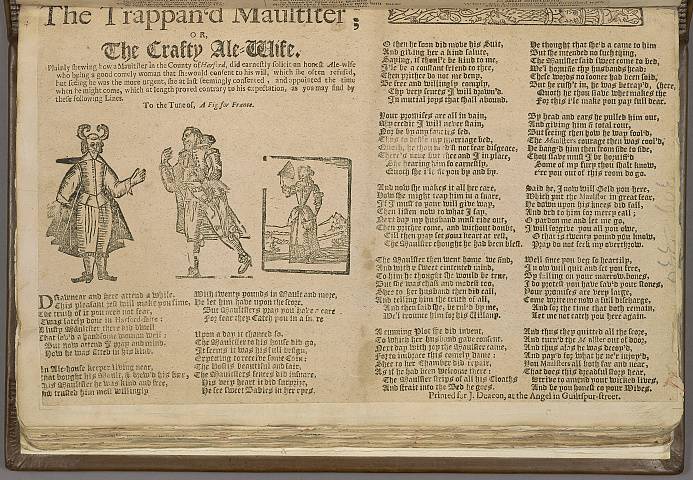 The Trappan'd Maultster;
OR,
The Crafty Ale-Wife.
Plainly shewing how a Maultster in the County of Harford, did earnestly solicit an honest Ale-wife
who being a good comely woman that she would consent to his will, which she often refused,
but seeing he was the more urgent, she at last seemingly consented, and appointed the time
when he might come, which at length proved contrary to his expectation, as you may find by
these following Lines.
To the Tune of, A Fig for France.
DRaw near and here attend a while,
This pleasant jest will make you smile,
The truth of it you need not fear,
Twas lately done in Harford-shire:
A lusty Maultster there did dwell
That lov'd a handsome woman well;
But now attend I pray and mind,
How he was serv'd in his kind.
In Ale-house keeper living near,
that bought his Mault, & brew'd his beer,
this Maultster he was kind and free,
and trusted him most willingly
With twenty pounds in Mault and more,
He let him have upon the score.
But Maultsters pray you have a care
For fear they Catch you in a snare
Upon a day it chanced so,
The Maultster to his house did go,
It seems it was his full design,
Expecting to receive some Coin:
The Host is beautiful and fair,
The Maultsters senses did insnare,
His very heart it did surprize,
He see sweet Babies in her eyes.
O then he soon did move his Suit,
And giving her a kind salute,
Saying, if thou'lt be kind to me,
I'le be a constant friend to thee,
Then prithee do not me deny,
Be free and willingly comply,
Thy very score I will discharge
In mutual joys that shall abound.
Your promises are all in vain,
My credit I will never stain,
Nor be by any fancies led,
Thus to defile my marriage bed,
Quoth he, thou need'st not fear disgrace,
There's none but thee and I in place,
She hearing him so earnestly,
Quoth she I'le sit you by and by.
And now she makes it all her care,
How she might trap him in a snare,
If I must to your will give way,
Then listen now to what I say,
Next day my husband must ride out,
Then prithee come, and without doubt,
Till then pray set your heart at rest
The Maultster thought he had been blest.
The Maultster then went home we find,
And with a sweet contented mind,
To him he thought she would be true,
But she was chast and modest too.
Shee to her husband then did call
And telling him the truth of all,
And then said she, be rul'd by me,
We'l reward him for his Villany.
A cunning Plot she did invent,
To which her husband gave consent.
Next day with joy the Maultster came,
For to imbrace this comely Dame:
Shee to her Chamber did repair,
As if he had been welcome there:
The Maultster strips of all his Cloaths
And strait into the Bed he goes.
He thought that she'd a came to him
But she intended no such thing,
The Maultster said sweet come to bed,
We'l hornifie thy husbands head;
These words no sooner had been said,
But he rush't in, he was betray'd,
Quoth he thou slave what makes thee here,
For this I'le make you pay full dear.
By head and ears he pulled him out,
And giving him a total rout,
But seeing then how he was fool'd,
The Maultsters courage then was cool'd,
He bang'd him then from side to side,
Thou slave must I be hornifi'd
Some of my fury thou shalt know,
E're you out of this room do go.
Said he, I now will Geld you here,
Which put the Maultster in great fear,
He down upon his knees did fall,
And did to him for mercy call;
O pardon me and let me go,
I will forgive you all you owe,
O that is twenty pound you know,
Pray do not seek my overthrow.
Well since you beg so heartily,
I now will quit and set you free,
By falling on your marrow-bones,
I do protest you have sav'd your stones,
Your promises are very large,
Come write me now a full discharge,
And for the time that doth remain,
Let me not catch you here again.
And thus they quitted all the score,
And turn'd the Maultster out of door,
And thus alas he was decoy'd,
And pay'd for what he ne'r injoy'd,
You Maultsters all both far and near,
That doth this dreadful story hear,
Strive to amend your wicked lives,
And be you honest to your Wives.
Printed for J. Deacon, at the Angel in Guiltspur-street.